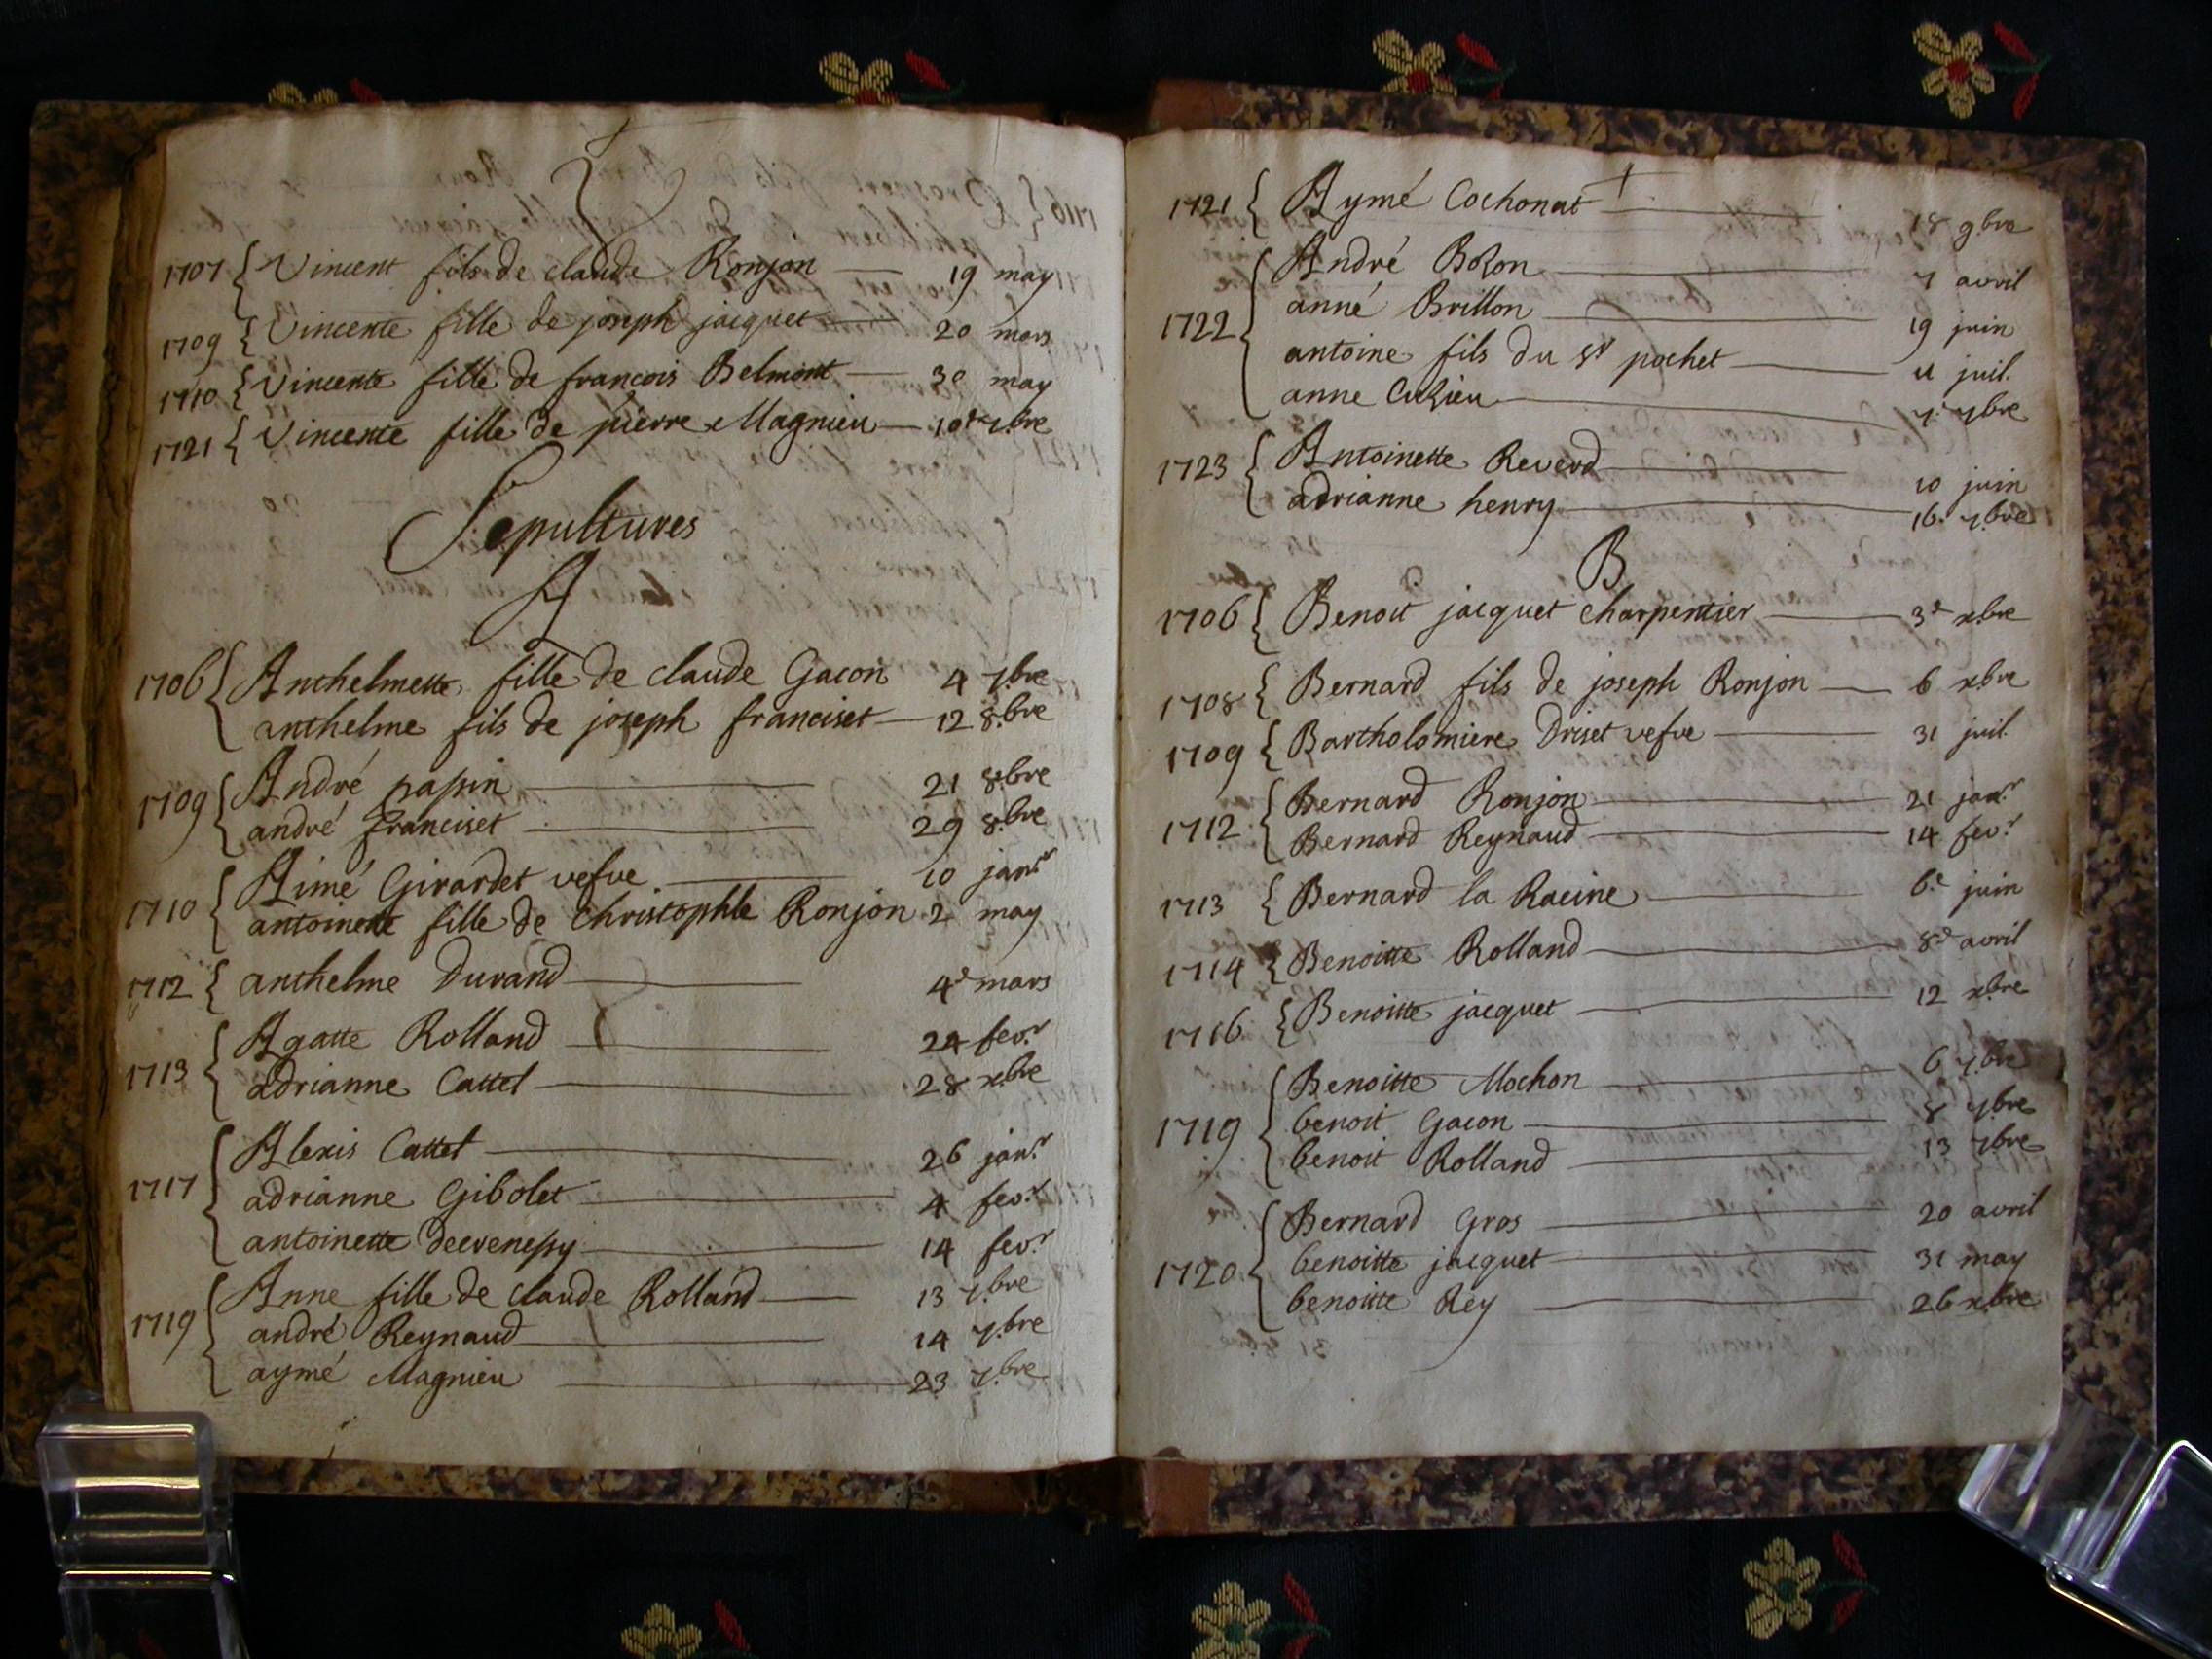 V
1707 { Vincent fils de claude Ronjon — 19 may
1709 { Vincente fille de joseph jacquet — 20 mars
1710 { Vincente fille de françois Belmont — 30 may
1721 { Vincente fille de pierre Magnieu — 10e 7.bre
Sepultures
A
1706 { Anthelmette fille de claude Gacon 4 7.bre
anthelme fils de joseph franciset — 12 8.bre
1709 { André papin — 21 8.bre
andré franciset — 29 8.bre
1710 { Aimé Girardet vefve — 10 janr
antoinette fille de christophle Ronjon 2 may
1712 { anthelme Durand — 4e mars
1713 { Agatte Rolland — 24 fev.r
adrianne Cattet — 28 xbre
1717 { Alexis Cattet — 26 jan.r
adrianne Gibolet — 4 fev.r
antoinette — 14 fev.r
1719 { Anne fille de claude Rolland — 13 7.bre
andré Reynaud — 14 7.bre
aymé Magnieu — 23 7.bre
1721 { Aymé Cochonat — 18 9.bre
1722 { André Bozon — 7 avril
anné Brillon — 19 juin
antoine fils du Sr pochet — 11 juil.
anne Cuzieu — 7. 7bre
1723 { Antoinette Reverd — 10 juin
adrianne henry — 16. 7.bre
B
1706 { Benoit jacquet charpentier — 3e xbre
1708 { Bernard fils de joseph Ronjon — 6 xbre
1709 { Bartholomiere Driset vefve — 31 juil.
1712 { Bernard Ronjon — 21 jan.r
Bernard Reynaud — 14 fev.r
1713 { Bernard la Racine — 6.e juin
1714 { Benoitte Rolland — 8e avril
1716 { Benoitte jacquet — 12 xbre
1719 { Benoitte Mochon — 6 7.bre
benoit Gacon — 8 7.bre
benoit Rolland — 13 7bre
1720 { Bernard Gros — 20 avril
benoitte jacquet — 31 may
benoitte Rey — 26 xbre